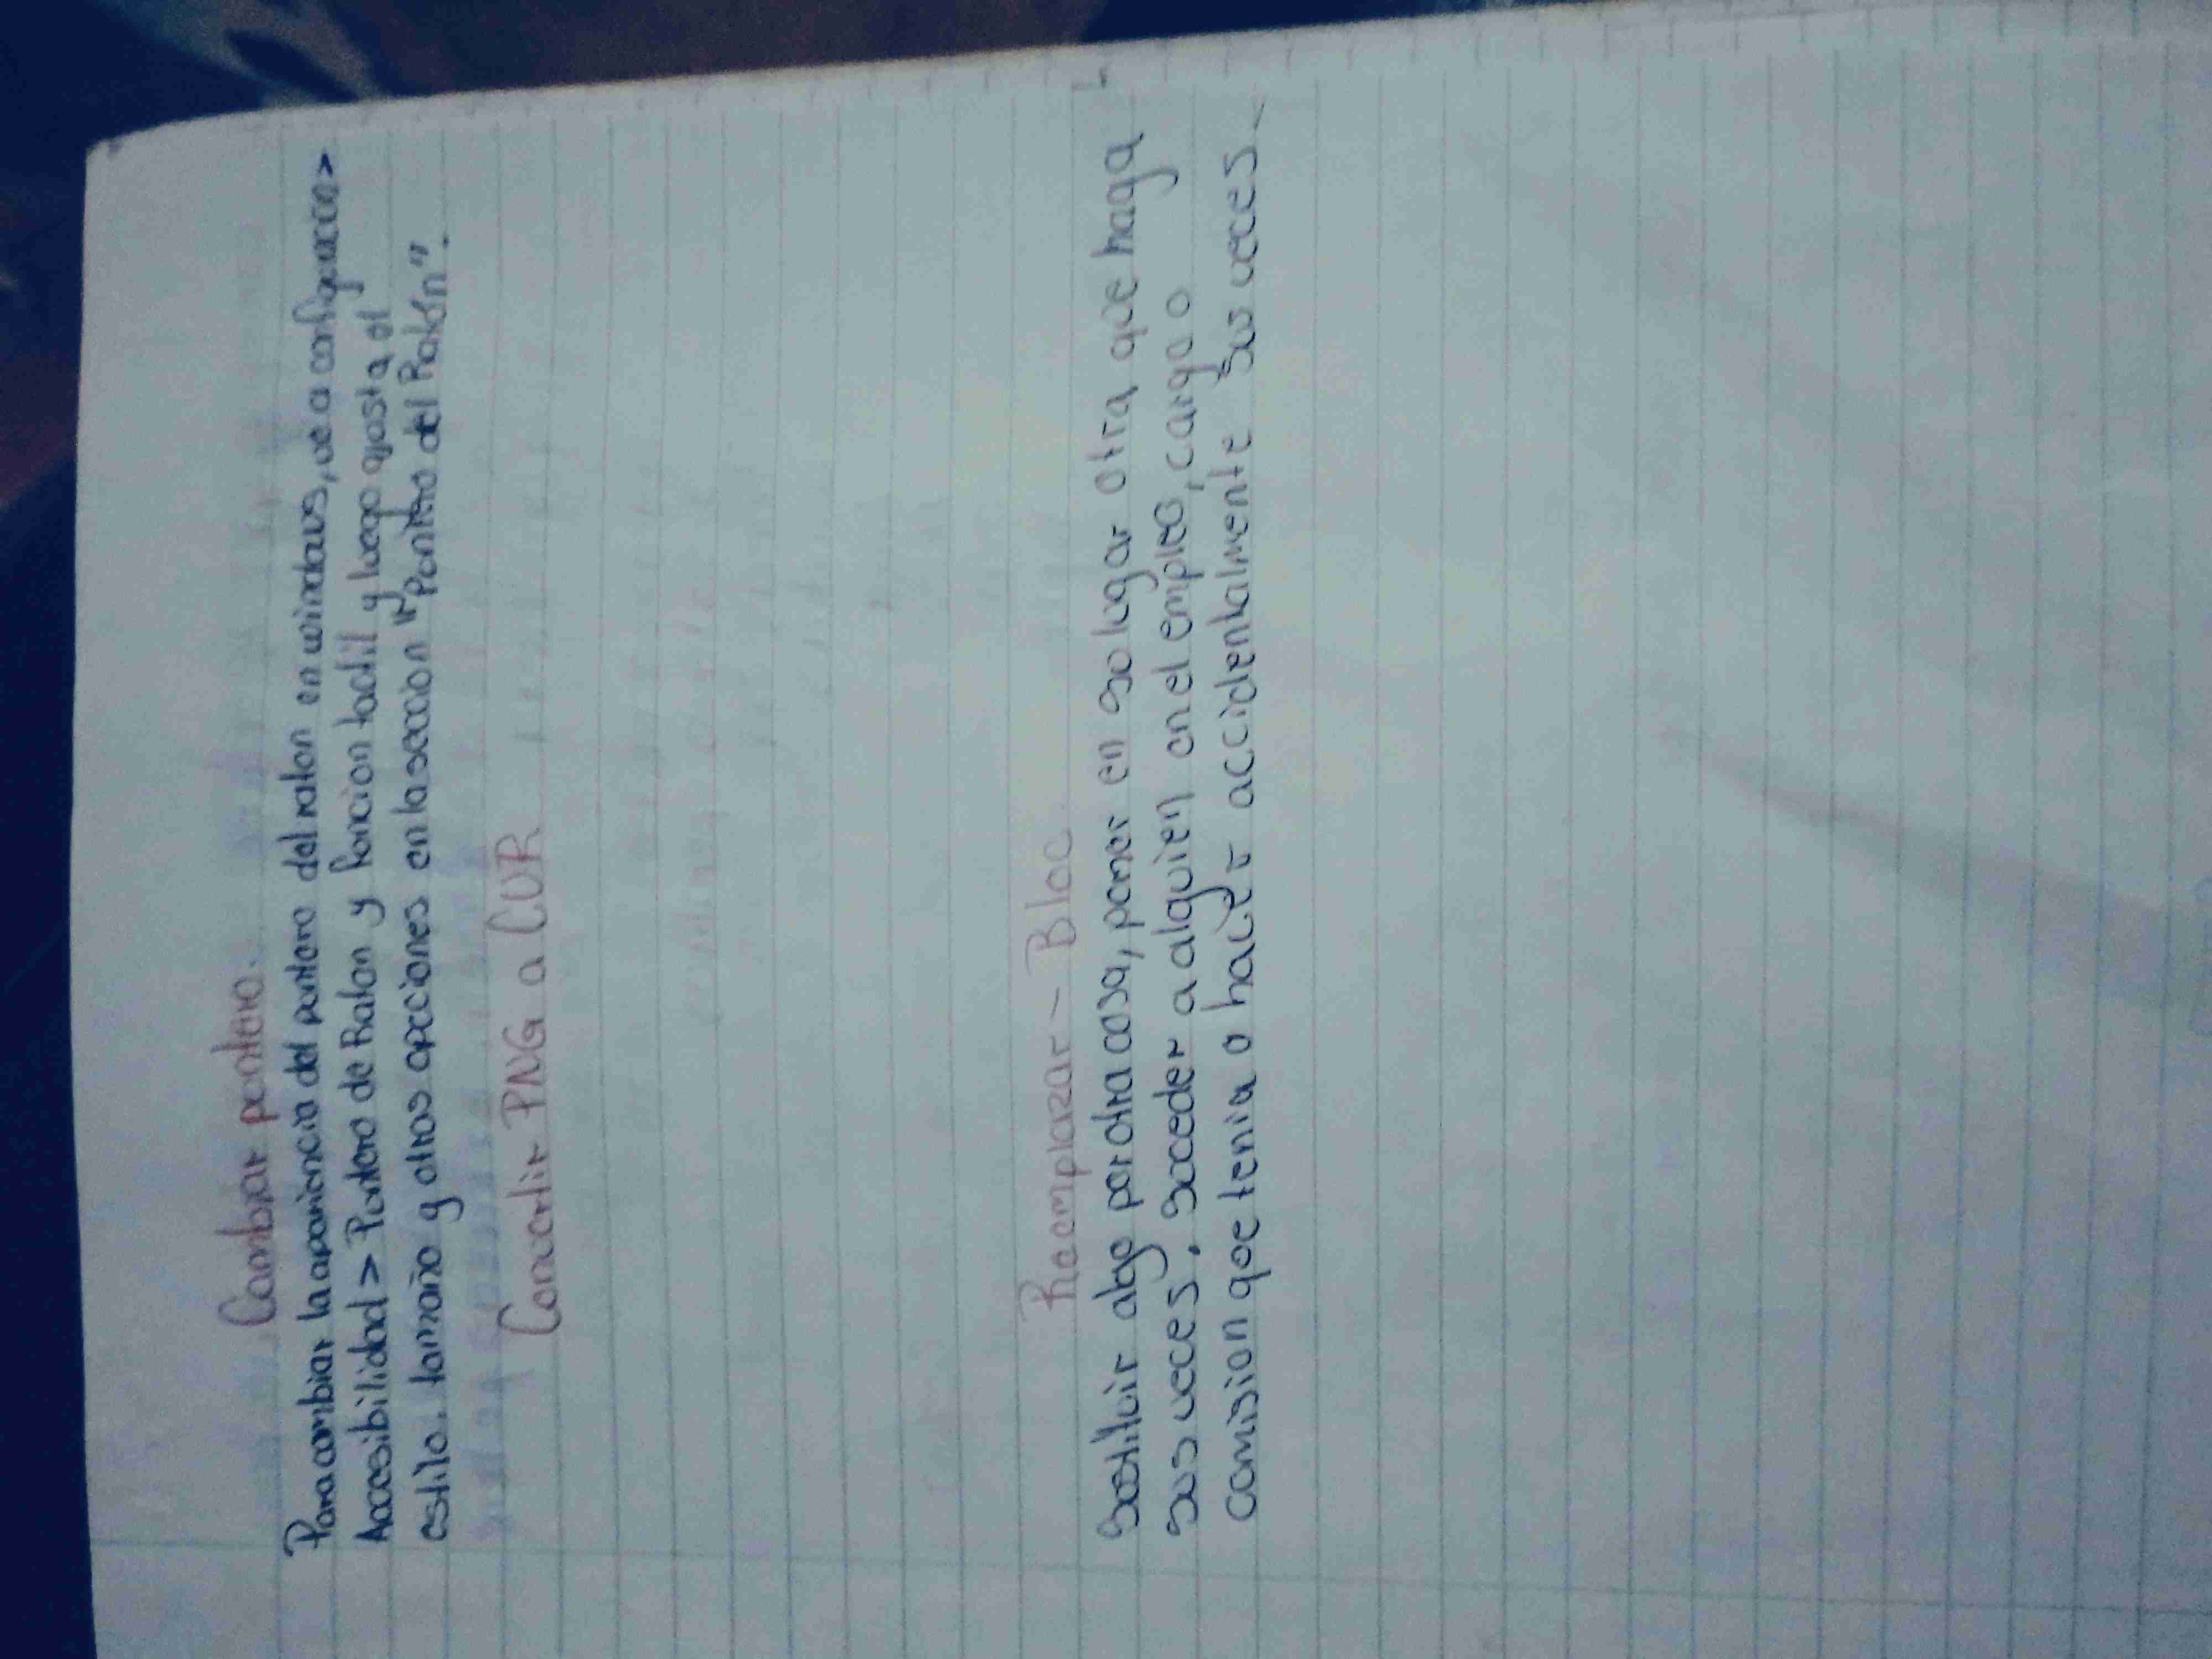 Cambiar pontero.
Para cambiar la apariencia del puntero del raton en windows, ve a configuracion >
Accesibilidad > Pontero de Raton y foncion tactil y luego ajosta el
estilo. tamaño y otras opciones en la seccion "Pontero del Ratón".
Convertir PNG a CUR
Reemplazar - Bloc
Sostituir algo por otra cosa, poner en so lugar otra que haga
sus veces, soceder a alguien en el empleo, cargo o
comision que tenia o hacer accidentalmente sus veces.